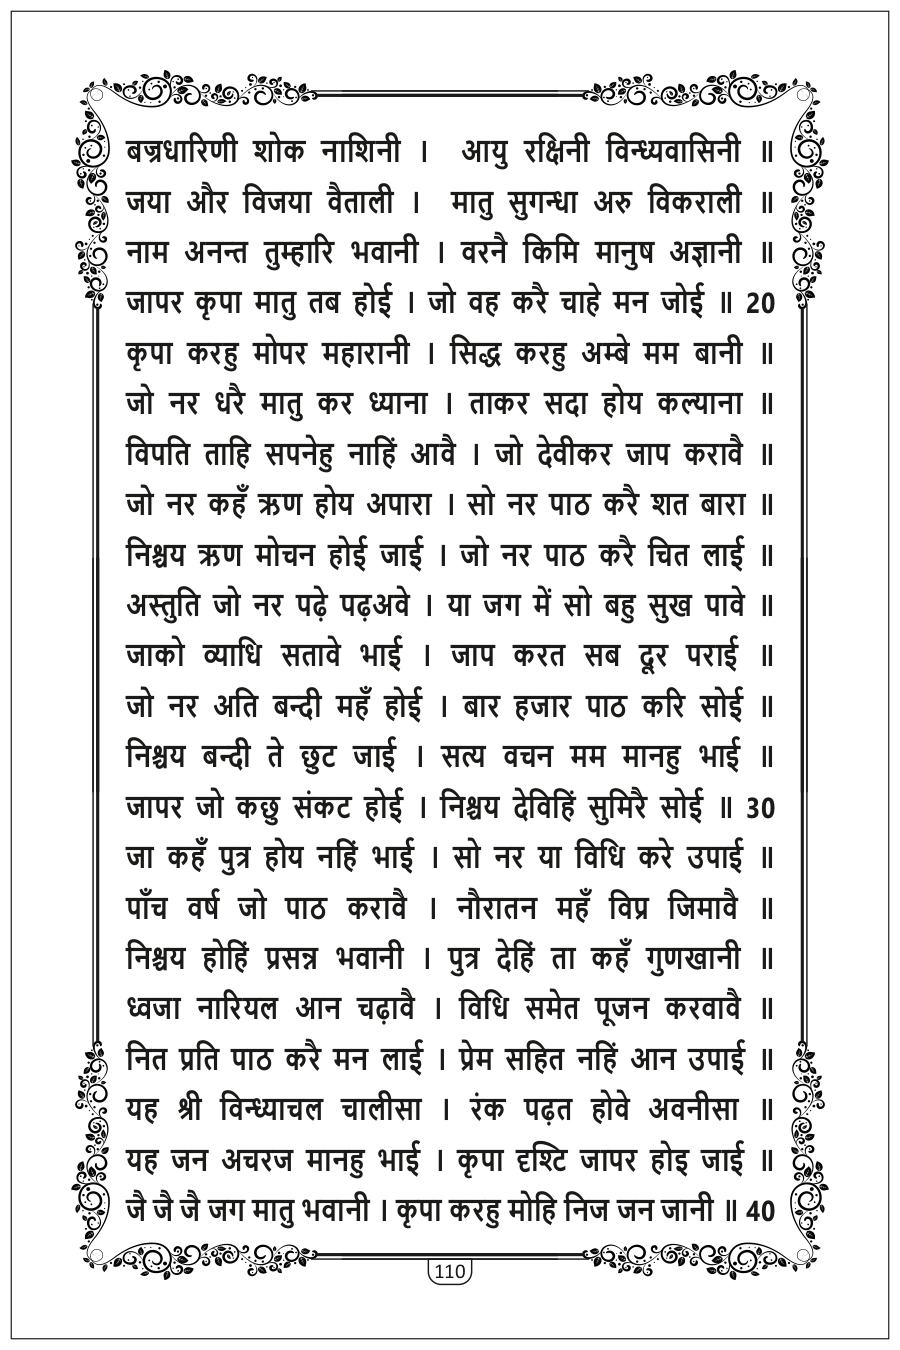 बज्रधारिणी शोक नाशिनी । आयु रक्षिनी विन्ध्यवासिनी ॥
जया और विजया वैताली । मातु सुगन्धा अरु विकराली ॥
नाम अनन्त तुम्हारि भवानी । वरनै किमि मानुष अज्ञानी ॥
जापर कृपा मातु तब होई । जो वह करै चाहे मन जोई ॥ 20
कृपा करहु मोपर महारानी । सिद्ध करहु अम्बे मम बानी ॥
जो नर धरै मातु कर ध्याना । ताकर सदा होय कल्याना ॥
विपति ताहि सपनेहु नाहिं आवै । जो देवीकर जाप करावै ॥
जो नर कहँ ऋण होय अपारा । सो नर पाठ करै शत बारा ॥
निश्चय ऋण मोचन होई जाई । जो नर पाठ करै चित लाई ॥
अस्तुति जो नर पढ़े पढ़अवे । या जग में सो बहु सुख पावे ॥
जाको व्याधि सतावे भाई । जाप करत सब दूर पराई ॥
जो नर अति बन्दी महँ होई । बार हजार पाठ करि सोई ॥
निश्चय बन्दी ते छुट जाई । सत्य वचन मम मानहु भाई ॥
जापर जो कछु संकट होई । निश्चय देविहिं सुमिरै सोई ॥ 30
जा कहँ पुत्र होय नहिं भाई । सो नर या विधि करे उपाई ॥
पाँच वर्ष जो पाठ करावै । नौरातन महँ विप्र जिमावै ॥
निश्चय होहिं प्रसन्न भवानी । पुत्र देहिं ता कहँ गुणखानी ॥
ध्वजा नारियल आन चढ़ावै । विधि समेत पूजन करवावै ॥
नित प्रति पाठ करै मन लाई । प्रेम सहित नहिं आन उपाई ॥
यह श्री विन्ध्याचल चालीसा । रंक पढ़त होवे अवनीसा ॥
यह जन अचरज मानहु भाई । कृपा दृश्टि जापर होइ जाई ॥
जै जै जै जग मातु भवानी । कृपा करहु मोहि निज जन जानी ॥ 40
110